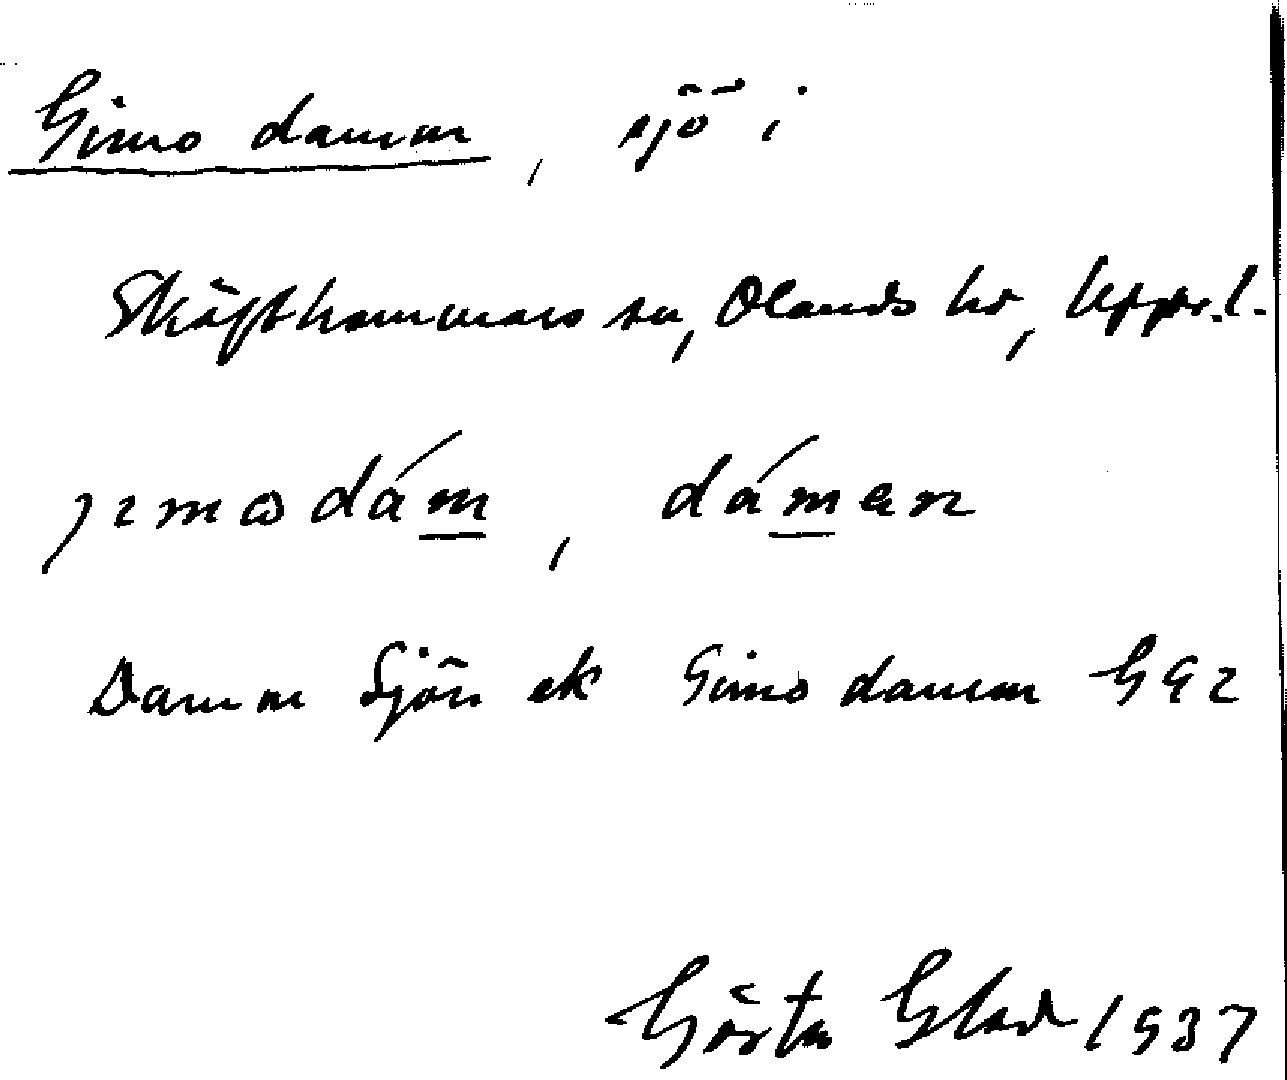 Gimo damm, sjö i
Skäfthammars sn, Olands hd, Uppl. l.
jɩmωdám̲, dám̲en
Damm Sjön ek Gimo damm G92
Gösta Glad 1937